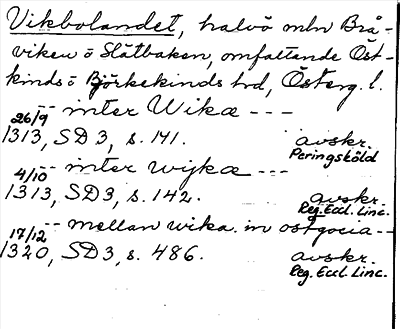 Vikbolandet, halvö mln Brå-
viken o Slätbaken, omfattande Öst-
kinds o Björkekinds hd, Österg. l.
-- inter Wikæ ---
26/9
1313, SD3, s. 141. avskr.
Peringsköld
-- inter wijkæ ---
4/10
1313, SD3, s. 142. avskr.
Reg. Eccl. Linc.
-- mellan wika. in ostgocia --
17/12
1320, SD3, s. 486. avskr.
Reg. Eccl. Linc.